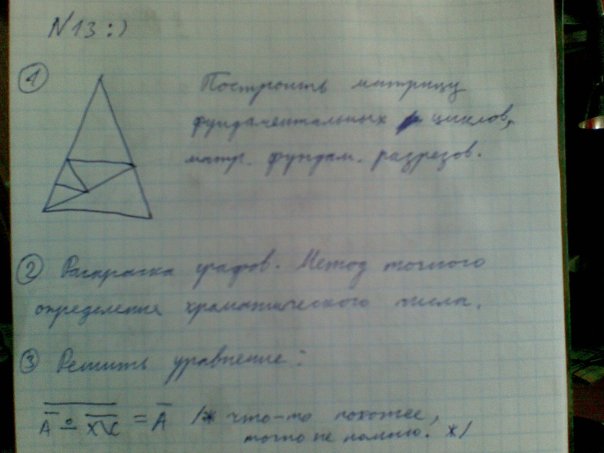 N13 :)
① Построить матрицу
фундаментальных циклов,
матр. фундам. разрезов.
② Раскраска графов. Метод точного
определения хроматического числа.
③ Решить уравнение:
= A̅ /* что-то похожее,
точно не помню. */